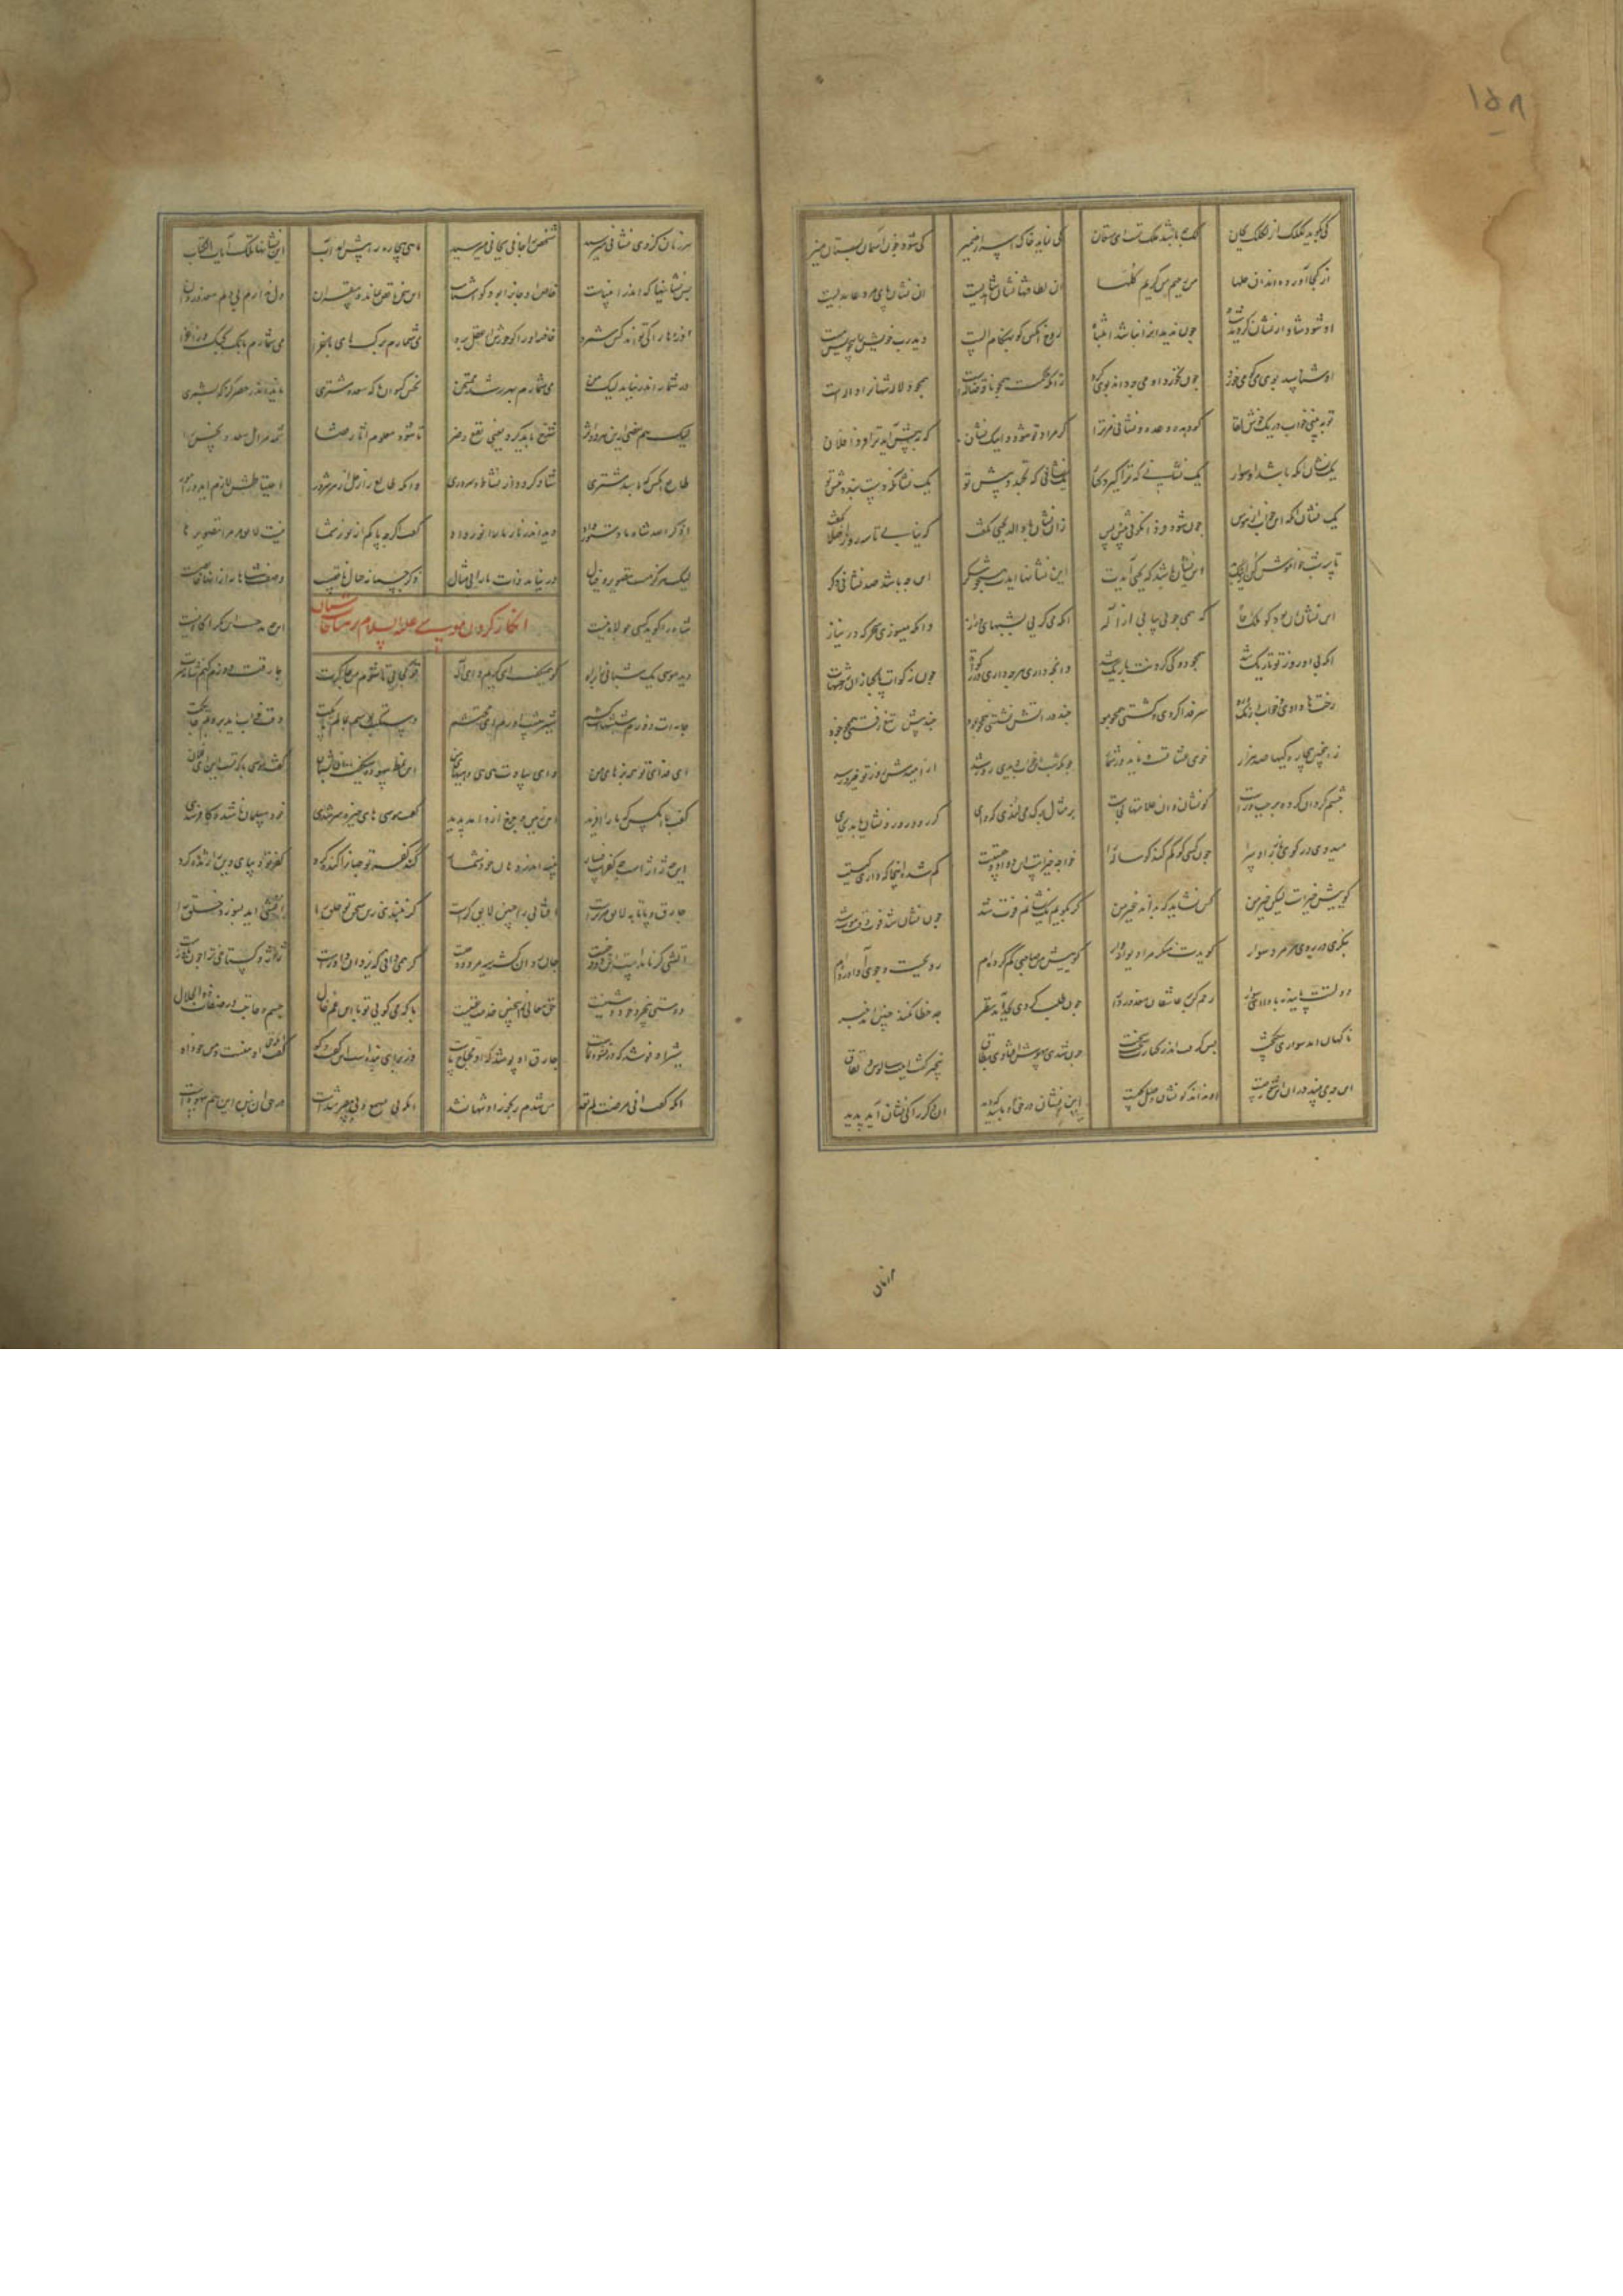 ۱۵۸
کی گوید لکلک از لکلک کیان لک چه باشد ملک تست ای مستعان کی نماید خاک اسرار ضمیر کی شود چون آسمان بستان منیر
از کجا آورده‌اند آن حلها من رحیم من کریم کلها آن لطافتها نشان شاهدیست آن نشان پای مرد عابدیست
او شود شاد از نشان کو دید شه چون ندید او را نباشد انتباه روح آنکس کو بهنگام الست دید رب خویش شد بیخویش مست
او شناسد بوی می کو می خورد چون نخورد او می چه داند بوی کرد زانکه حکمت همچو ناقه ضاله است همچو دلالان شهانرا داله است
تو ببینی خواب در یک خوش لقا کو دهد وعده و نشانی مر ترا که مراد تو شود و اینک نشان که به پیش آید ترا فردا فلان
یک نشان آنکه باشد او سوار یک نشانی که ترا گیرد کنار یک نشانی که بخندد پیش تو یک نشان که دست بندد پیش تو
یک نشان آنکه این خواب از هوس چون شود فردا نگویی پیش کس زان نشان با والد یحیی بگفت که نیایی تا سه روز اصلا بگفت
تا سه شب خاموش کن از نیک و بدت این نشان باشد که یحیی آیدت این نشانها آیدت همچون شکر این چه باشد صد نشانی دگر
این نشان آن بود کو ملک و جاه که همی جویی بیابی از اله آنکه می گریی بشبهای دراز وانکه میسوزی سحرگه در نیاز
آنکه بی او روز تو تاریک شد همچو دوکی گردنت باریک شد وانچه دادی هرچه داری در زکوة چون زکوة پاکبازان رختهات
رختها دادی و خواب و رنگ رو سر فدا کردی و گشتی همچو مو چند در آتش نشستی همچو عود چند پیش تیغ رفتی همچو خود
زین چنین بیچارگیها صد هزار خوی عشاقست و ناید در شمار چونکه شب این خواب دیدی روز شد از امیدش روز تو پیروز شد
چشم گردان کرده بر چپ و راست کو نشان و آن علامتها کجاست بر مثال برگ می لرزی که وای گر رود روز و نشان ناید بجای
میدوی در کوی و بازار و سرا چون کسی کو گم کند گوساله را خواجه خیرست این دوادو چیستت گم شده اینجا که داری کیستت
گوییش خیرست لیکن خیر من کس نشاید که بداند غیر من گر بگویم یک نشانم فوت شد چون نشان شد فوت وقت موت شد
بنگری در روی هر مرد سوار گویدت منگر مرا دیوانه‌وار گوییش من صاحبی گم کرده‌ام رو بجست و جوی او آورده‌ام
دولتت پاینده بادا ای سوار رحم کن بر عاشقان معذور دار چون طلب کردی بجد آمد نظر جد خطا نکند چنین آمد خبر
ناگهان آمد سواری نیکبخت پس گرفت اندر کنارت سخت سخت چون شدی بیهوش و افتادی بطاق بیخبر گفت اینت سالوس و نفاق
او چه می بیند درو این شور چیست او نداند کان نشان وصل کیست این نشان در حق او باشد که دید آن دگر را کی نشان آید پدید
هر زمان
هر زمان کز وی نشانی میرسید شخص را جانی بجانی میرسید ماهی بیچاره را پیش آمد آب این نشانها تلک آیات الکتاب
پس نشانیها که اندر انبیاست خاص آن جانرا بود کو آشناست این سخن ناقص بماند و بیقرار دل ندارم بی دلم معذور دار
ذره‌ها را کی تواند کس شمرد خاصه او را کو عشق عقل برد می شمارم برگهای باغ را می شمارم بانگ کبک و زاغ را
در شمار اندر نیاید لیک من می شمارم بهر رشد ممتحن نحس کیوان یا که سعد مشتری ناید اندر حصر گرچه بشمری
لیک هم بعضی ازین هر دو اثر شرح باید کرد یعنی نفع و ضر تا شود معلوم آثار قضا شمه مر اهل سعد و نحس را
طالع آنکس که باشد مشتری شاد گردد از نشاط و سروری وانکه طالع از زحل از هر شرور احتیاطش لازم آید در امور
اذکروا الله شاه ما دستور داد دید اندر نار ما را نور داد گفت اگرچه پاکم از ذکر شما نیست لایق مر مرا تصویرها
لیک هرگز مست تصویر و خیال در نیابد ذات ما را بی مثال ذکر جسمانه خیال ناقص است وصف شاهانه از آنها خالص است
شاه را گوید کسی جولاه نیست این چه مدحست این مگر آگاه نیست
انکار کردن موسی علیه السلام بر مناجات شبان
دید موسی یک شبانی را براه کو همی گفت ای کریم و ای اله تو کجایی تا شوم من چاکرت چارقت دوزم کنم شانه سرت
جامه‌ات دوزم شپشهایت کشم شیر پیشت آورم ای محتشم دستکت بوسم بمالم پایکت وقت خواب آید بروبم جایکت
ای فدای تو همه بزهای من ای بیادت هی هی و هیهای من این نمط بیهوده میگفت آن شبان گفت موسی با کیست این ای فلان
گفت با آنکس که ما را آفرید این زمین و چرخ ازو آمد پدید گفت موسی های خیره سر شدی خود مسلمان ناشده کافر شدی
این چه ژاژست این چه کفرست و فشار پنبه اندر دهان خود فشار گند کفر تو جهانرا گنده کرد کفر تو دیبای دین را ژنده کرد
چارق و پاتابه لایق مر تراست آفتابی را چنینها کی رواست گر نبندی زین سخن تو حلق را آتشی آید بسوزد خلق را
آتشی گر نامدست این دود چیست جان سیه گشته روان مردود چیست گر همی دانی که یزدان داورست ژاژ و گستاخی ترا چون باورست
دوستی بیخرد خود دشمنیست حق تعالی زین چنین خدمت غنیست با که می گویی تو این با عم و خال جسم و حاجت در صفات ذوالجلال
شیر او نوشد که در نشو و نماست چارق او پوشد که او محتاج پاست ور برای بنده است این گفت و گو آنکه حق گفت او منست و من خود او
آنکه گفت انی مرضت لم تعد من شدم رنجور او تنها نشد آنکه بی یسمع و بی یبصر شدست در حق آن بنده این هم بیهدست